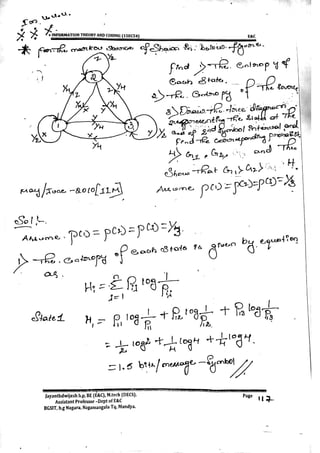 INFORMATION THEORY AND CODING (15EC54) E&C
* For the markov source of shown in below figure.
find 1> The Entropy of
each state.
2> The Entropy of the source
3> Draw the tree diagram
representing the states at the
end of 2nd symbol interval and
find the corresponding probability
4> G1, G2, and The
Show That G1 > G2 > H.
Assume p(1)=p(2)=p(3)=1/3
1/2
Z
2
1/4
1/4
1
3
1/2
X
Y
1/2
Y
1/4
May/June - 2010[11M]
Sol :-
Assume. p(1)=p(2)=p(3)=1/3.
1> The Entropy of each state is given by equation
as,
State1
= 1/2 log2 + 1/4 log4 + 1/4 log4.
= 1.5 bits/message-symbol //
Jayanthdwijesh h.p, BE (E&C), M.tech (DECS).
Assistant Professor -Dept of E&C
BGSIT, b.g Nagara, Nagamangala Tq, Mandya.
Page 112